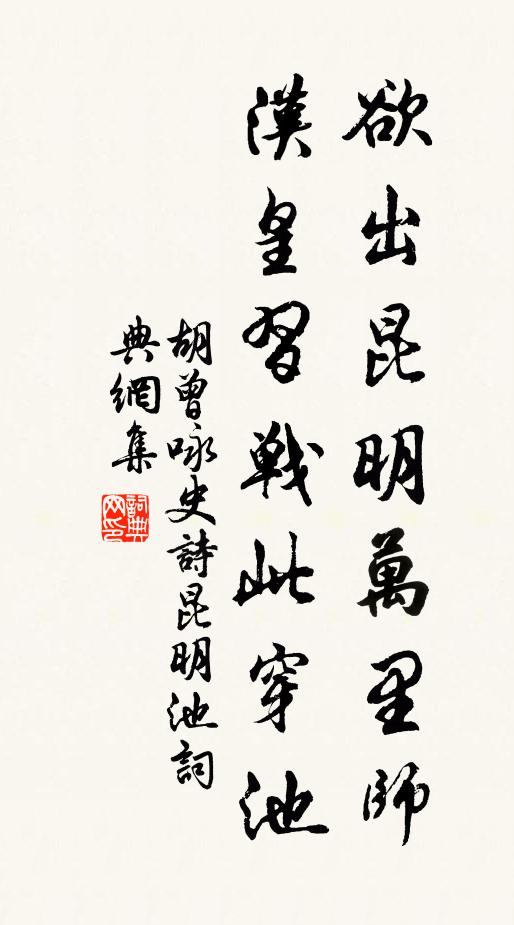 欲出昆明萬里師
漢皇習戰此穿池
胡曾咏史詩昆明池詞
典網集
詞典網印